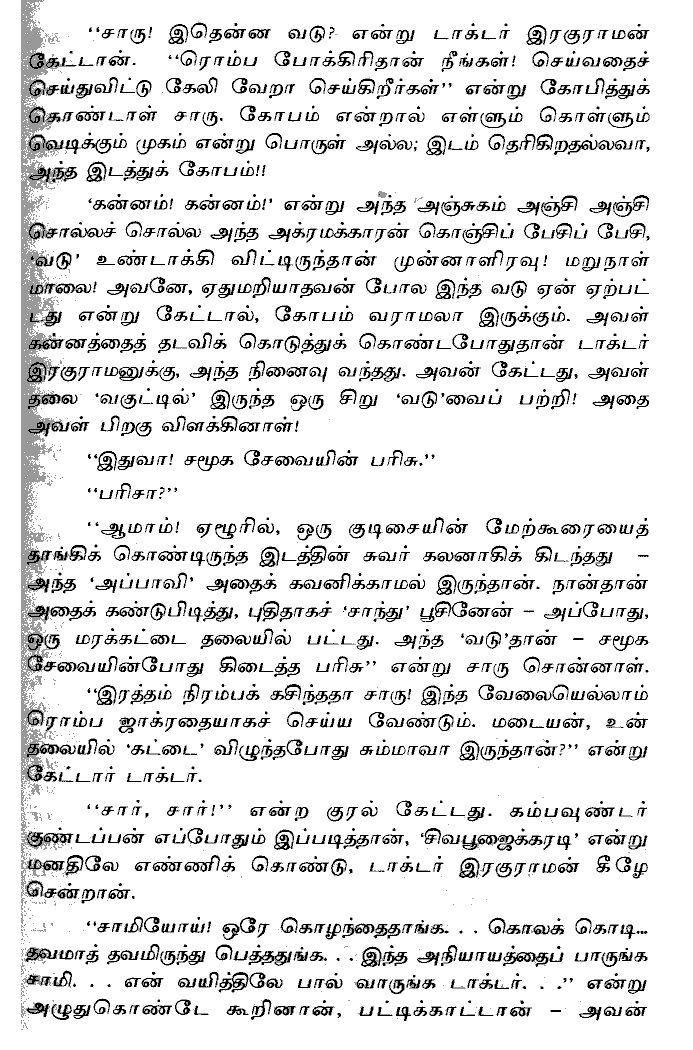 ‘‘சாரு! இதென்ன வடு? என்று டாக்டர் இரகுராமன்
கேட்டான். ‘‘ரொம்ப போக்கிரிதான் நீங்கள்! செய்வதைச்
செய்துவிட்டு கேலி வேறா செய்கிறீர்கள்’’ என்று கோபித்துக்
கொண்டாள் சாரு. கோபம் என்றால் எள்ளும் கொள்ளும்
வெடிக்கும் முகம் என்று பொருள் அல்ல; இடம் தெரிகிறதல்லவா,
அந்த இடத்துக் கோபம்!!
‘கன்னம்! கன்னம்!’ என்று அந்த அஞ்சுகம் அஞ்சி அஞ்சி
சொல்லச் சொல்ல அந்த அக்ரமக்காரன் கொஞ்சிப் பேசிப் பேசி,
‘வடு’ உண்டாக்கி விட்டிருந்தான் முன்னாளிரவு! மறுநாள்
மாலை! அவனே, ஏதுமறியாதவன் போல இந்த வடு ஏன் ஏற்பட்
டது என்று கேட்டால், கோபம் வராமலா இருக்கும். அவள்
கன்னத்தைத் தடவிக் கொடுத்துக் கொண்டபோதுதான் டாக்டர்
இரகுராமனுக்கு, அந்த நினைவு வந்தது. அவன் கேட்டது, அவள்
தலை ‘வகுட்டில்’ இருந்த ஒரு சிறு ‘வடு’வைப் பற்றி! அதை
அவள் பிறகு விளக்கினாள்!
‘‘இதுவா! சமூக சேவையின் பரிசு.’’
‘‘பரிசா?’’
‘‘ஆமாம்! ஏழூரில், ஒரு குடிசையின் மேற்கூரையைத்
தாங்கிக் கொண்டிருந்த இடத்தின் சுவர் கலனாகிக் கிடந்தது –
அந்த ‘அப்பாவி’ அதைக் கவனிக்காமல் இருந்தான். நான்தான்
அதைக் கண்டுபிடித்து, புதிதாகச் ‘சாந்து’ பூசினேன் – அப்போது,
ஒரு மரக்கட்டை தலையில் பட்டது. அந்த ‘வடு’தான் – சமூக
சேவையின்போது கிடைத்த பரிசு’’ என்று சாரு சொன்னாள்.
‘‘இரத்தம் நிரம்பக் கசிந்ததா சாரு! இந்த வேலையெல்லாம்
ரொம்ப ஜாக்ரதையாகச் செய்ய வேண்டும். மடையன், உன்
தலையில் ‘கட்டை’ விழுந்தபோது சும்மாவா இருந்தான்?’’ என்று
கேட்டார் டாக்டர்.
‘‘சார், சார்!’’ என்ற குரல் கேட்டது. கம்பவுண்டர்
குண்டப்பன் எப்போதும் இப்படித்தான், ‘சிவபூஜைக்கரடி’ என்று
மனதிலே எண்ணிக் கொண்டு, டாக்டர் இரகுராமன் கீழே
சென்றான்.
‘‘சாமியோய்! ஒரே கொழந்தைதாங்க. . . கொலக் கொடி...
தவமாத் தவமிருந்து பெத்ததுங்க. . . இந்த அநியாயத்தைப் பாருங்க
சாமி. . . என் வயித்திலே பால் வாருங்க டாக்டர். . .’’ என்று
அழுதுகொண்டே கூறினான், பட்டிக்காட்டான் – அவன்